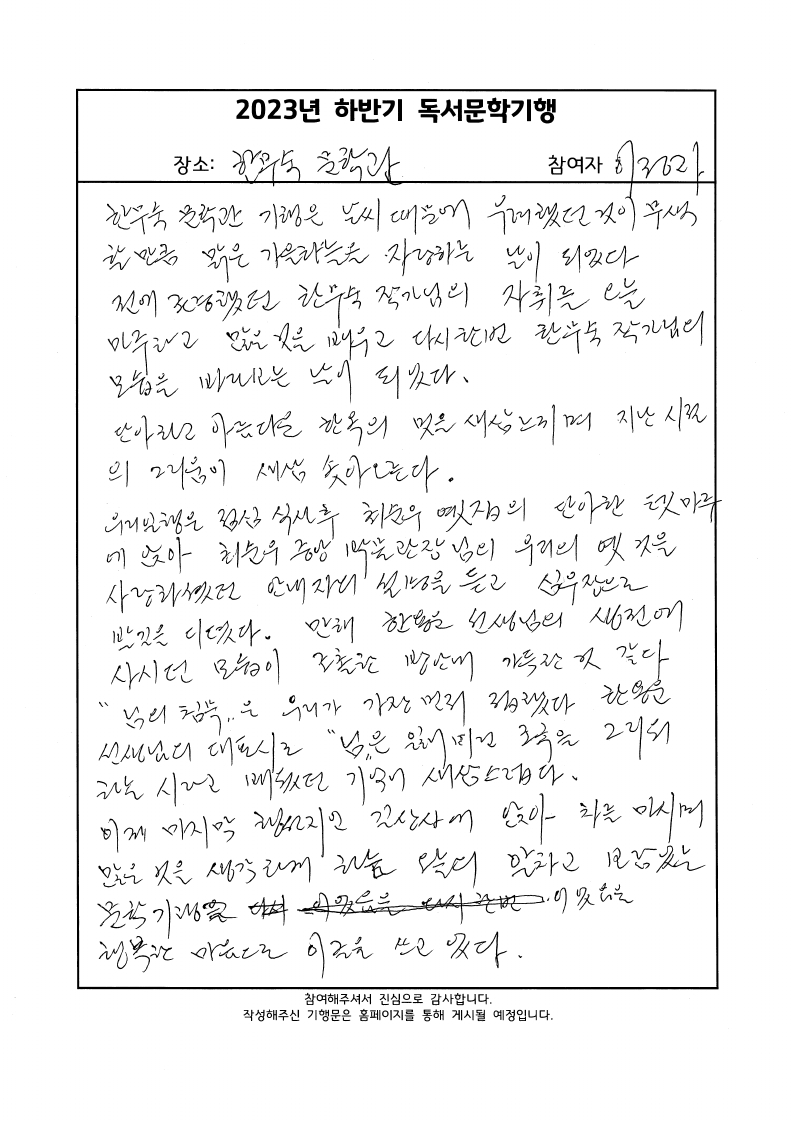 2023년 하반기 독서문학기행
장소: 한무숙 문학관 참여자
한무숙 문학관 기행은 날씨 때문에 우려했던 것이 무색
할 만큼 맑은 가을하늘을 자랑하는 날이 되었다
전에 했던 한무숙 작가님의 자취를 오늘
마주하고 많은 것을 배우고 다시한번 한무숙 작가님의
모습을 바라보는 날이 되었다.
단아하고 아름다운 한옥의 멋을 새삼느끼며 지난 시절
의 그리움이 새삼 솟아오른다.
우리일행은 점심 식사후 최순우 옛집의 단아한 툇마루
에 앉아 최순우 중앙 박물관장님의 우리의 옛 것을
사랑하셨던 안내자의 설명을 듣고 심우장으로
발길을 디뎠다. 만해 한용운 선생님의 생전에
사시던 모습이 조촐한 방안에 가득한 것 같다
“님의 침묵”은 우리가 가장 먼저 접했다 한용운
선생님의 대표시로 “님”은 잃어버린 조국을 그리워
하는 시라고 배웠던 기억이 새삼스럽다.
이제 마지막 행선지인 길상사에 앉아 차를 마시며
많은 것을 생각하게 하는 오늘의 알차고 보람있는
문학기행 이었음을
행복한 마음으로 이글을 쓰고 있다.
참여해주셔서 진심으로 감사합니다.
작성해주신 기행문은 홈페이지를 통해 게시될 예정입니다.